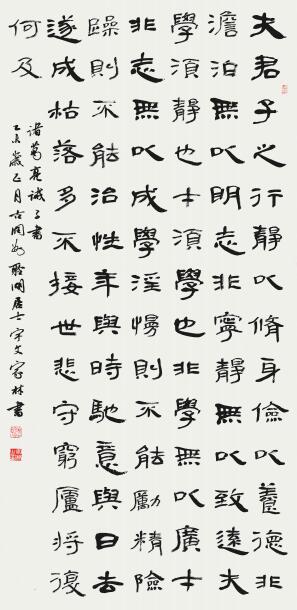 夫君子之行靜以脩身儉以養德非
澹泊無以明志非寧靜無以致遠夫
學須靜也才須學也非學無以廣才
非志無以成學淫慢則不能勵精險
躁則不能治性年與時馳意與日去
遂成枯落多不接世悲守窮廬將復
何及
諸葛亮誡子書
歲正月古居士宋文家林書